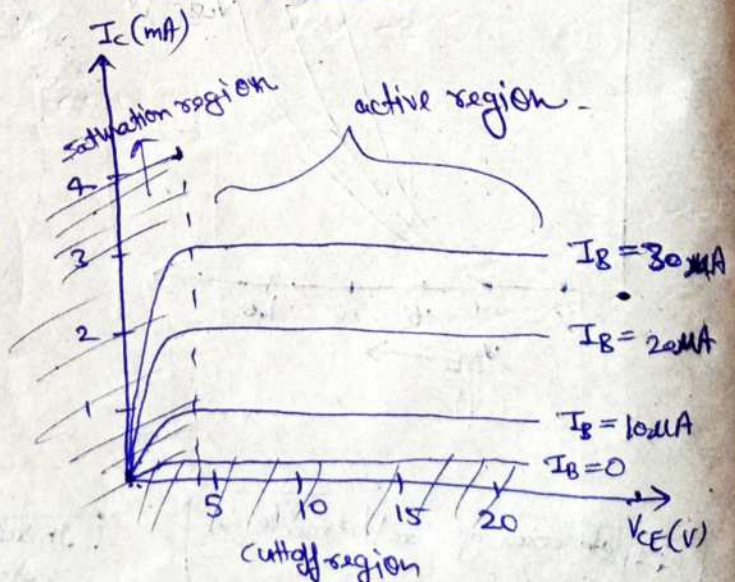 I_C (mA)
saturation region
active region -
4
3
2
1
I_B = 30 μA
I_B = 20 μA
I_B = 10 μA
I_B = 0
5 10 15 20
V_CE (V)
cuttoff region